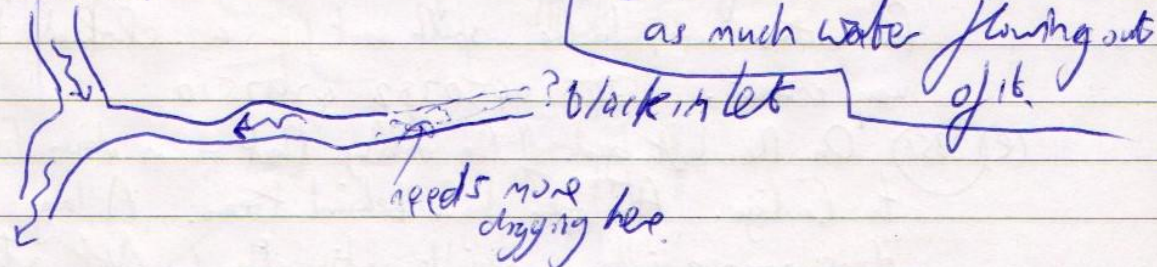 as much water flowing out
of it.
? black inlet
needs more
digging here.